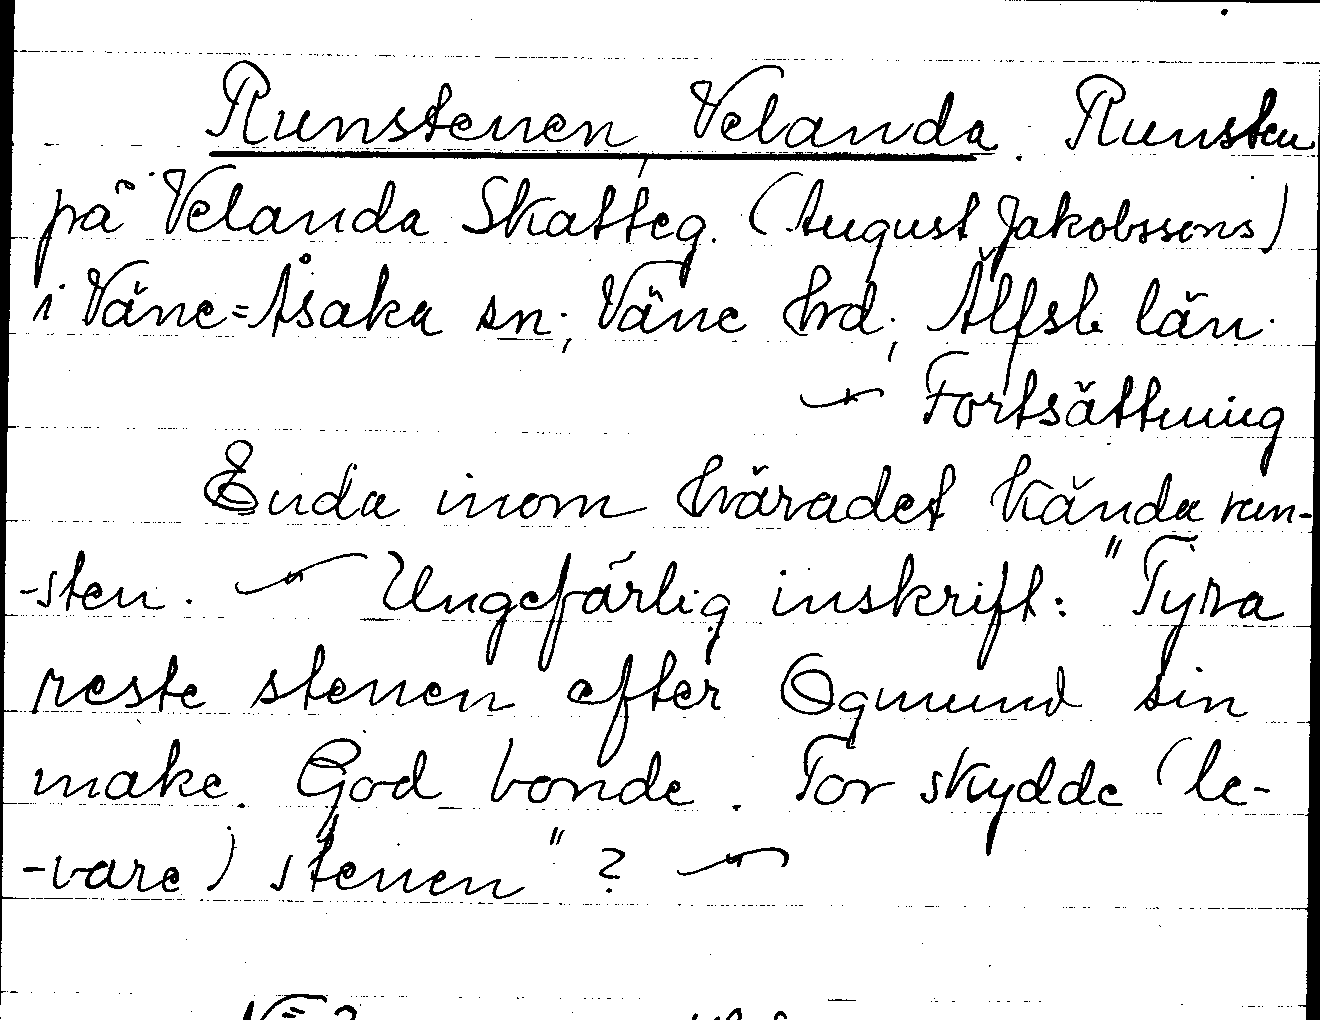 Runstenen, Velanda. Runsten
på Velanda Skatteg. (August Jakobssons)
i Väne=Åsaka sn; Väne hrd; Älfsb län.
Fortsättning
Enda inom häradet kända run-
-sten. Ungefärlig inskrift: "Tyra
reste stenen efter Ogmund sin
make. God bonde. Tor skydde (be-
-vare) stenen"?